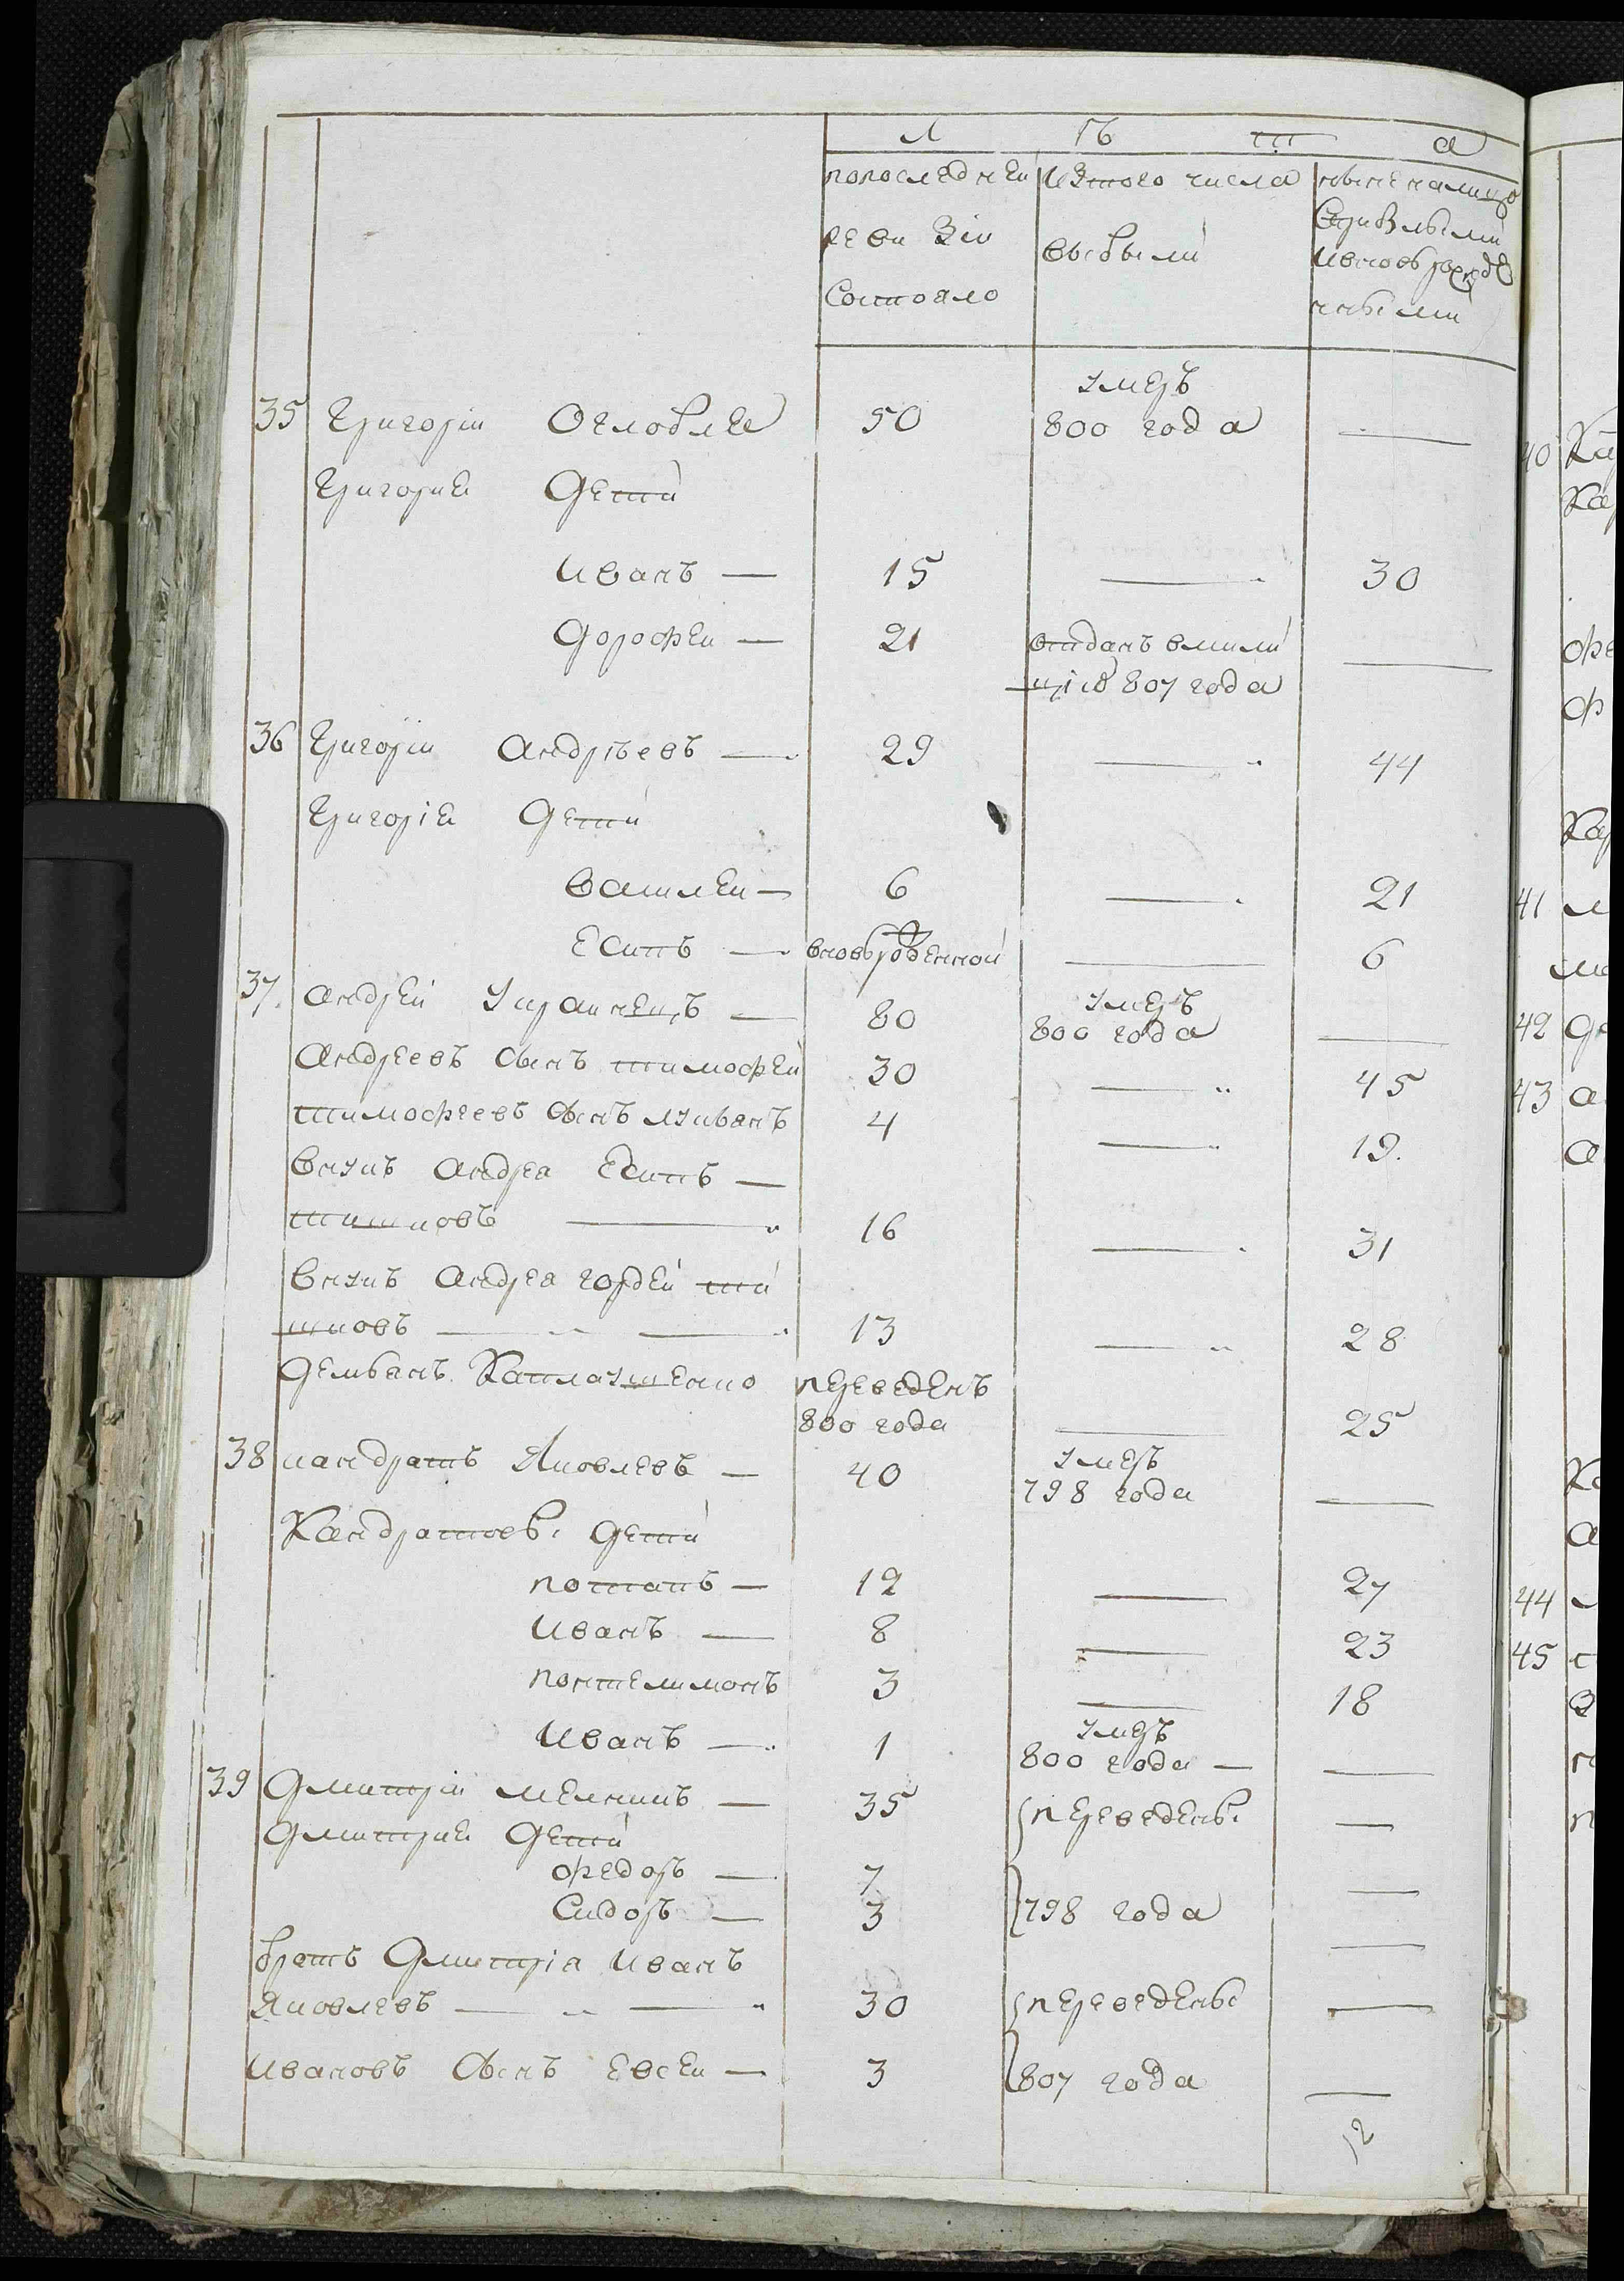 Л Ѣ т а
по последней из того числа ныне налицо
ревизiи выбыли Сприбылыми
Состояло и вновь рожде
нными
умеръ
35 Григорiй Оглобля 50 800 года —
Григорiя Дети
Иванъ — 15 — 30
Дорофей — 21 отданъ вмили —
цiю 807 года
36 Григорiй Андрѣевъ — 29 — 44
Григорiя Дети
Василей — 6 — 21
Есипъ — вновьрожденной — 6
умеръ
37. Андрей Украинецъ — 80 800 года —
Андреевъ сынъ тимофей 30 — 45
тимофеевъ сынъ лукьянъ 4 — 19.
Внукъ Андрея Есипъ —
тишковъ — 16 — 31
Внукъ Андрея гордей ти
шковъ — 13 — 28
Демьянъ Каплаушенко переведенъ
800 года — 25
умеръ
38 кандратъ Яковлевъ — 40 798 года —
Кандратовы Дети
потапъ — 12 — 27
Иванъ — 8 — 23
понтелимонъ 3 — 18
умеръ
Иванъ — 1 800 года — —
39 Дмитрiй мелникъ — 35 переведены —
Дмитрия Дети
федоръ — 7 —
Сидоръ — 3 798 года —
братъ Дмитрiя Иванъ
Яковлевъ — 30 переведены —
Ивановъ Сынъ Евсей — 3 807 года —
12
40 Ка
Ка
фе
ф
Кар
41 м
ми
42 Д
43 а
а
Ка
а
44
45 с
п